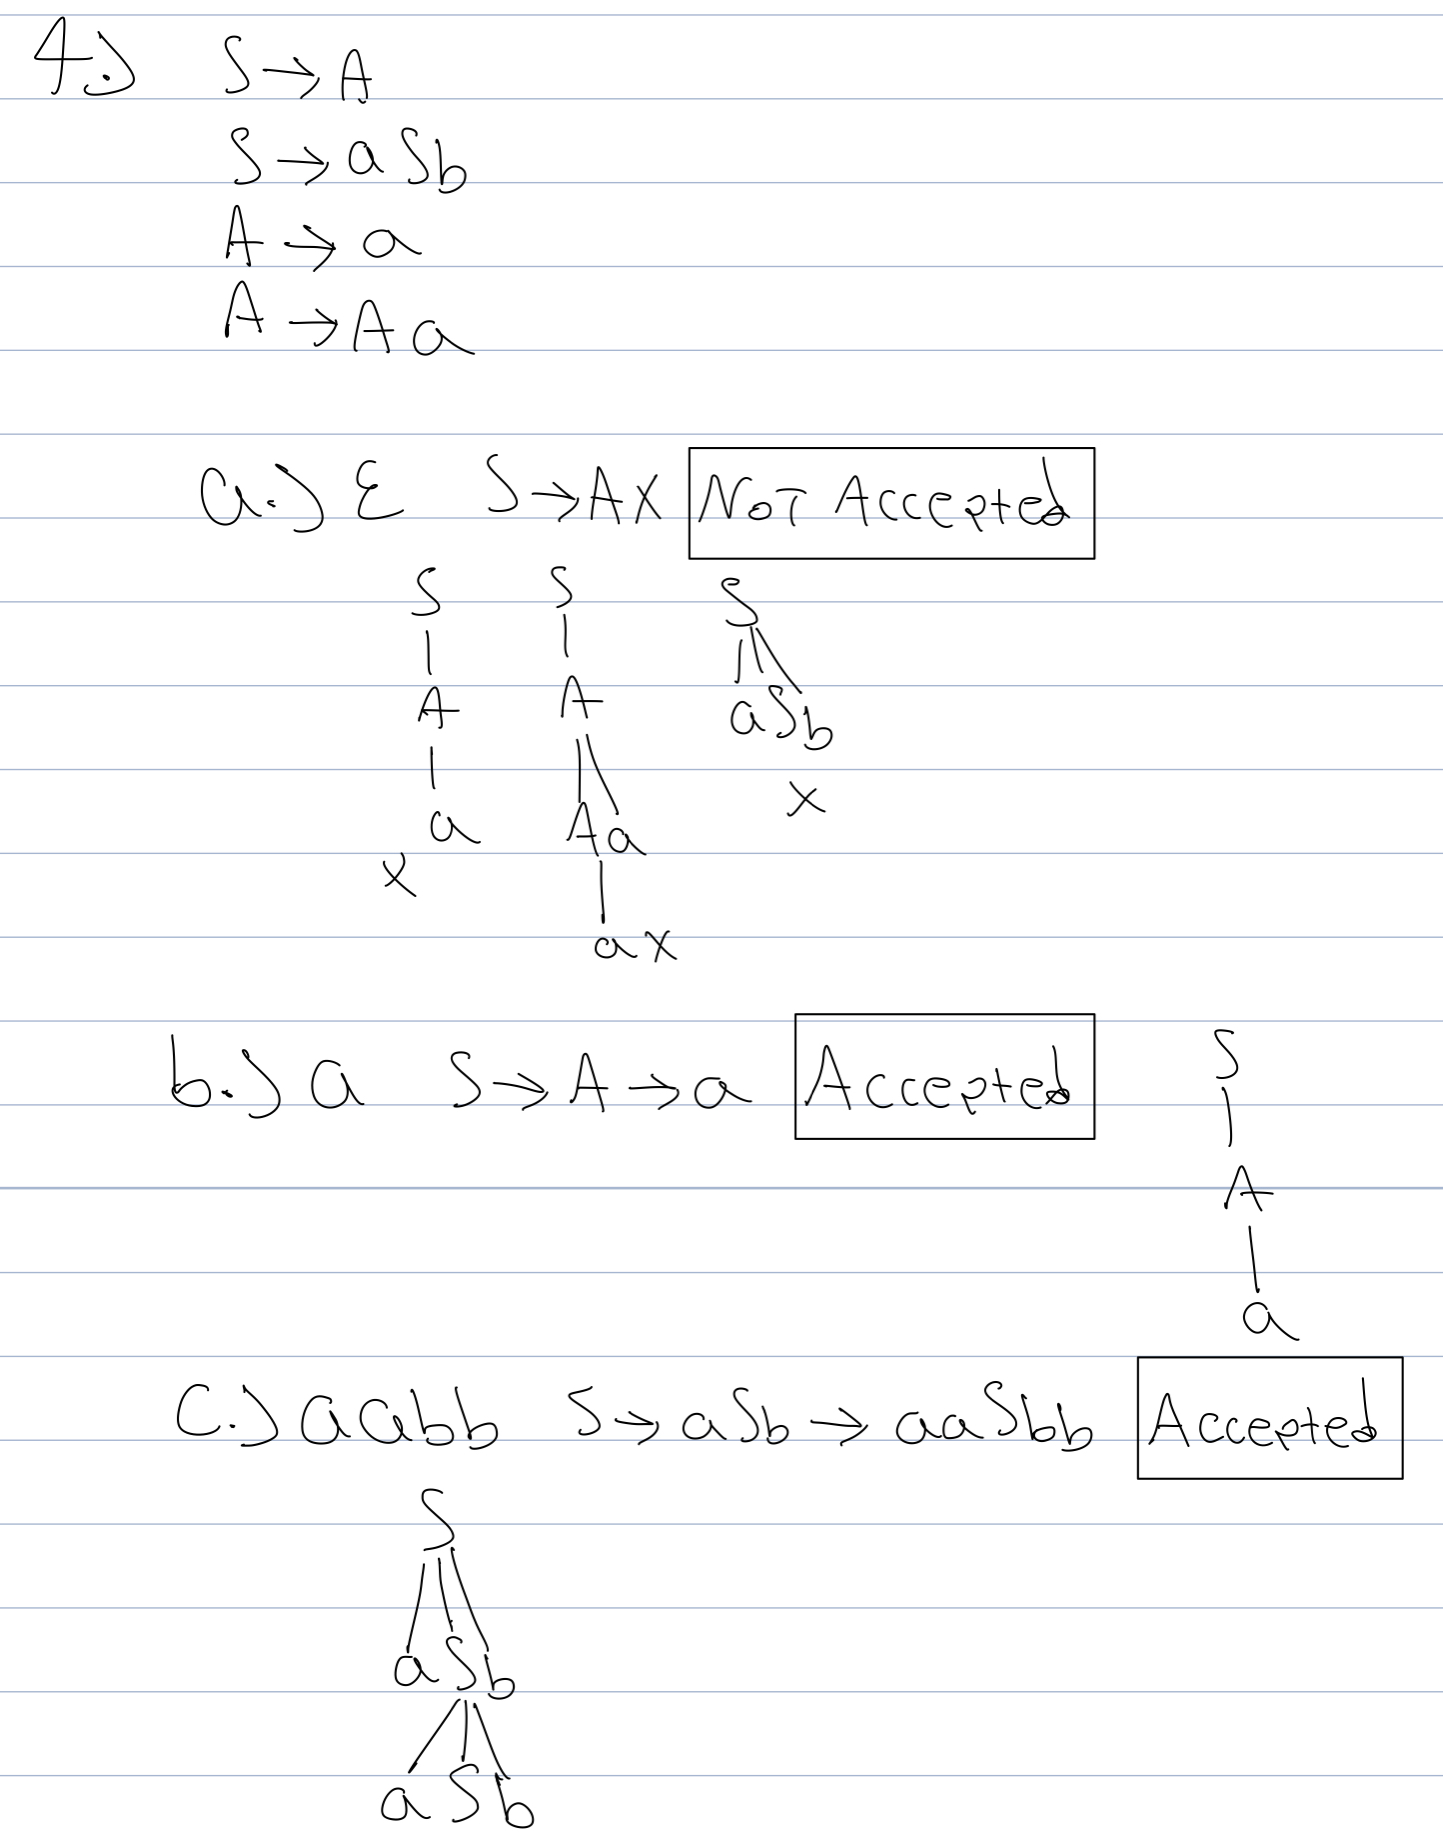 4.) S → A
S → aSb
A → a
A → Aa
a.) ε S → A X NOT Accepted
S S S
A A aSb
a Aa X
X a X
b.) a S → A → a Accepted S
A
a
C.) aabb S → aSb → aaSbb Accepted
S
aSb
aSb